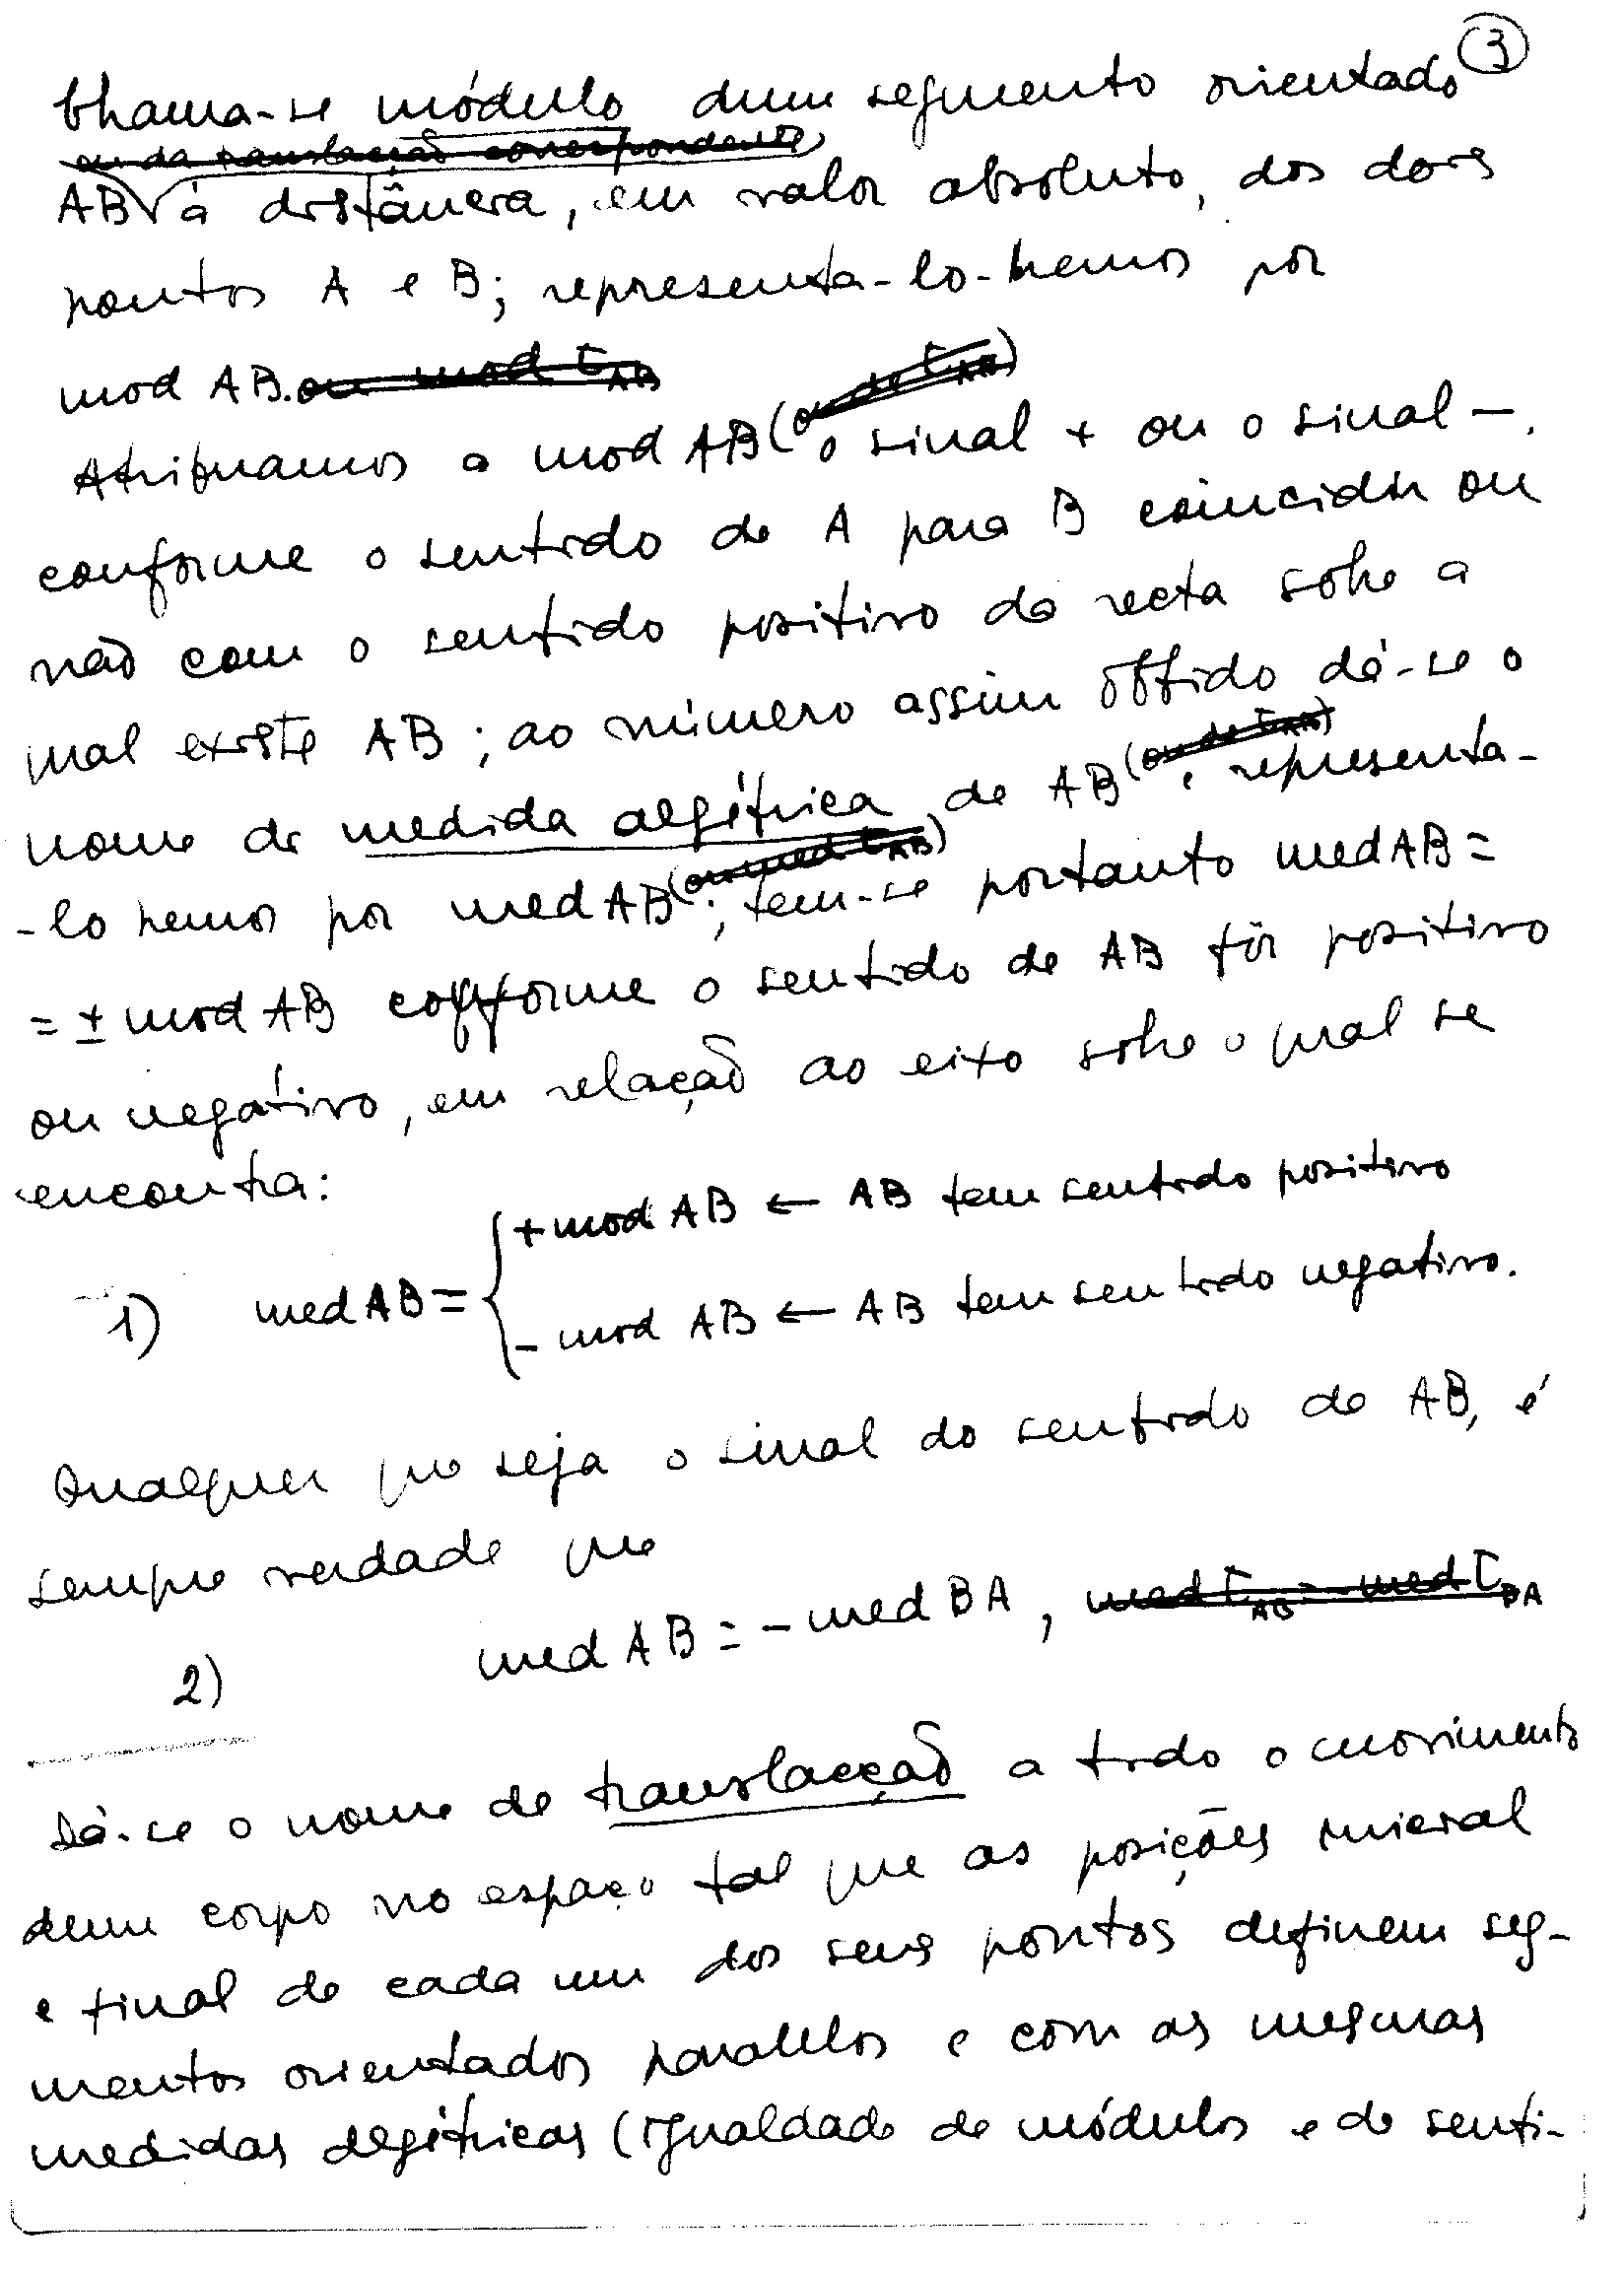 3
Chama-se módulo dum segmento orientado
ou da translação correspondente
AB à distância, em valor absoluto, dos dois
pontos A e B; representá-lo-hemos por
mod AB. ou mod τAB
Atribuamos a mod AB (ou de τAB) o sinal + ou o sinal -,
conforme o sentido de A para B coincidir ou
não com o sentido positivo da recta sobre a
qual existe AB; ao número assim obtido dá-se o
nome de medida algébrica de AB (ou de τAB) e representa-
-lo hemos por med AB (ou med τAB); tem-se portanto med AB =
= ± mod AB conforme o sentido de AB fôr positivo
ou negativo, em relação ao eixo sobre o qual se
encontra:
1) med AB = { + mod AB ← AB tem sentido positivo
- mod AB ← AB tem sentido negativo.
Qualquer que seja o sinal do sentido de AB, é
sempre verdade que
2) med AB = - med BA, med τAB = - med τBA
Dá-se o nome de translacção a todo o movimento
dum corpo no espaço tal que as posições inicial
e final de cada um dos seus pontos definem seg-
mentos orientados paralelos e com as mesmas
medidas algébricas (igualdade de módulos e de senti-